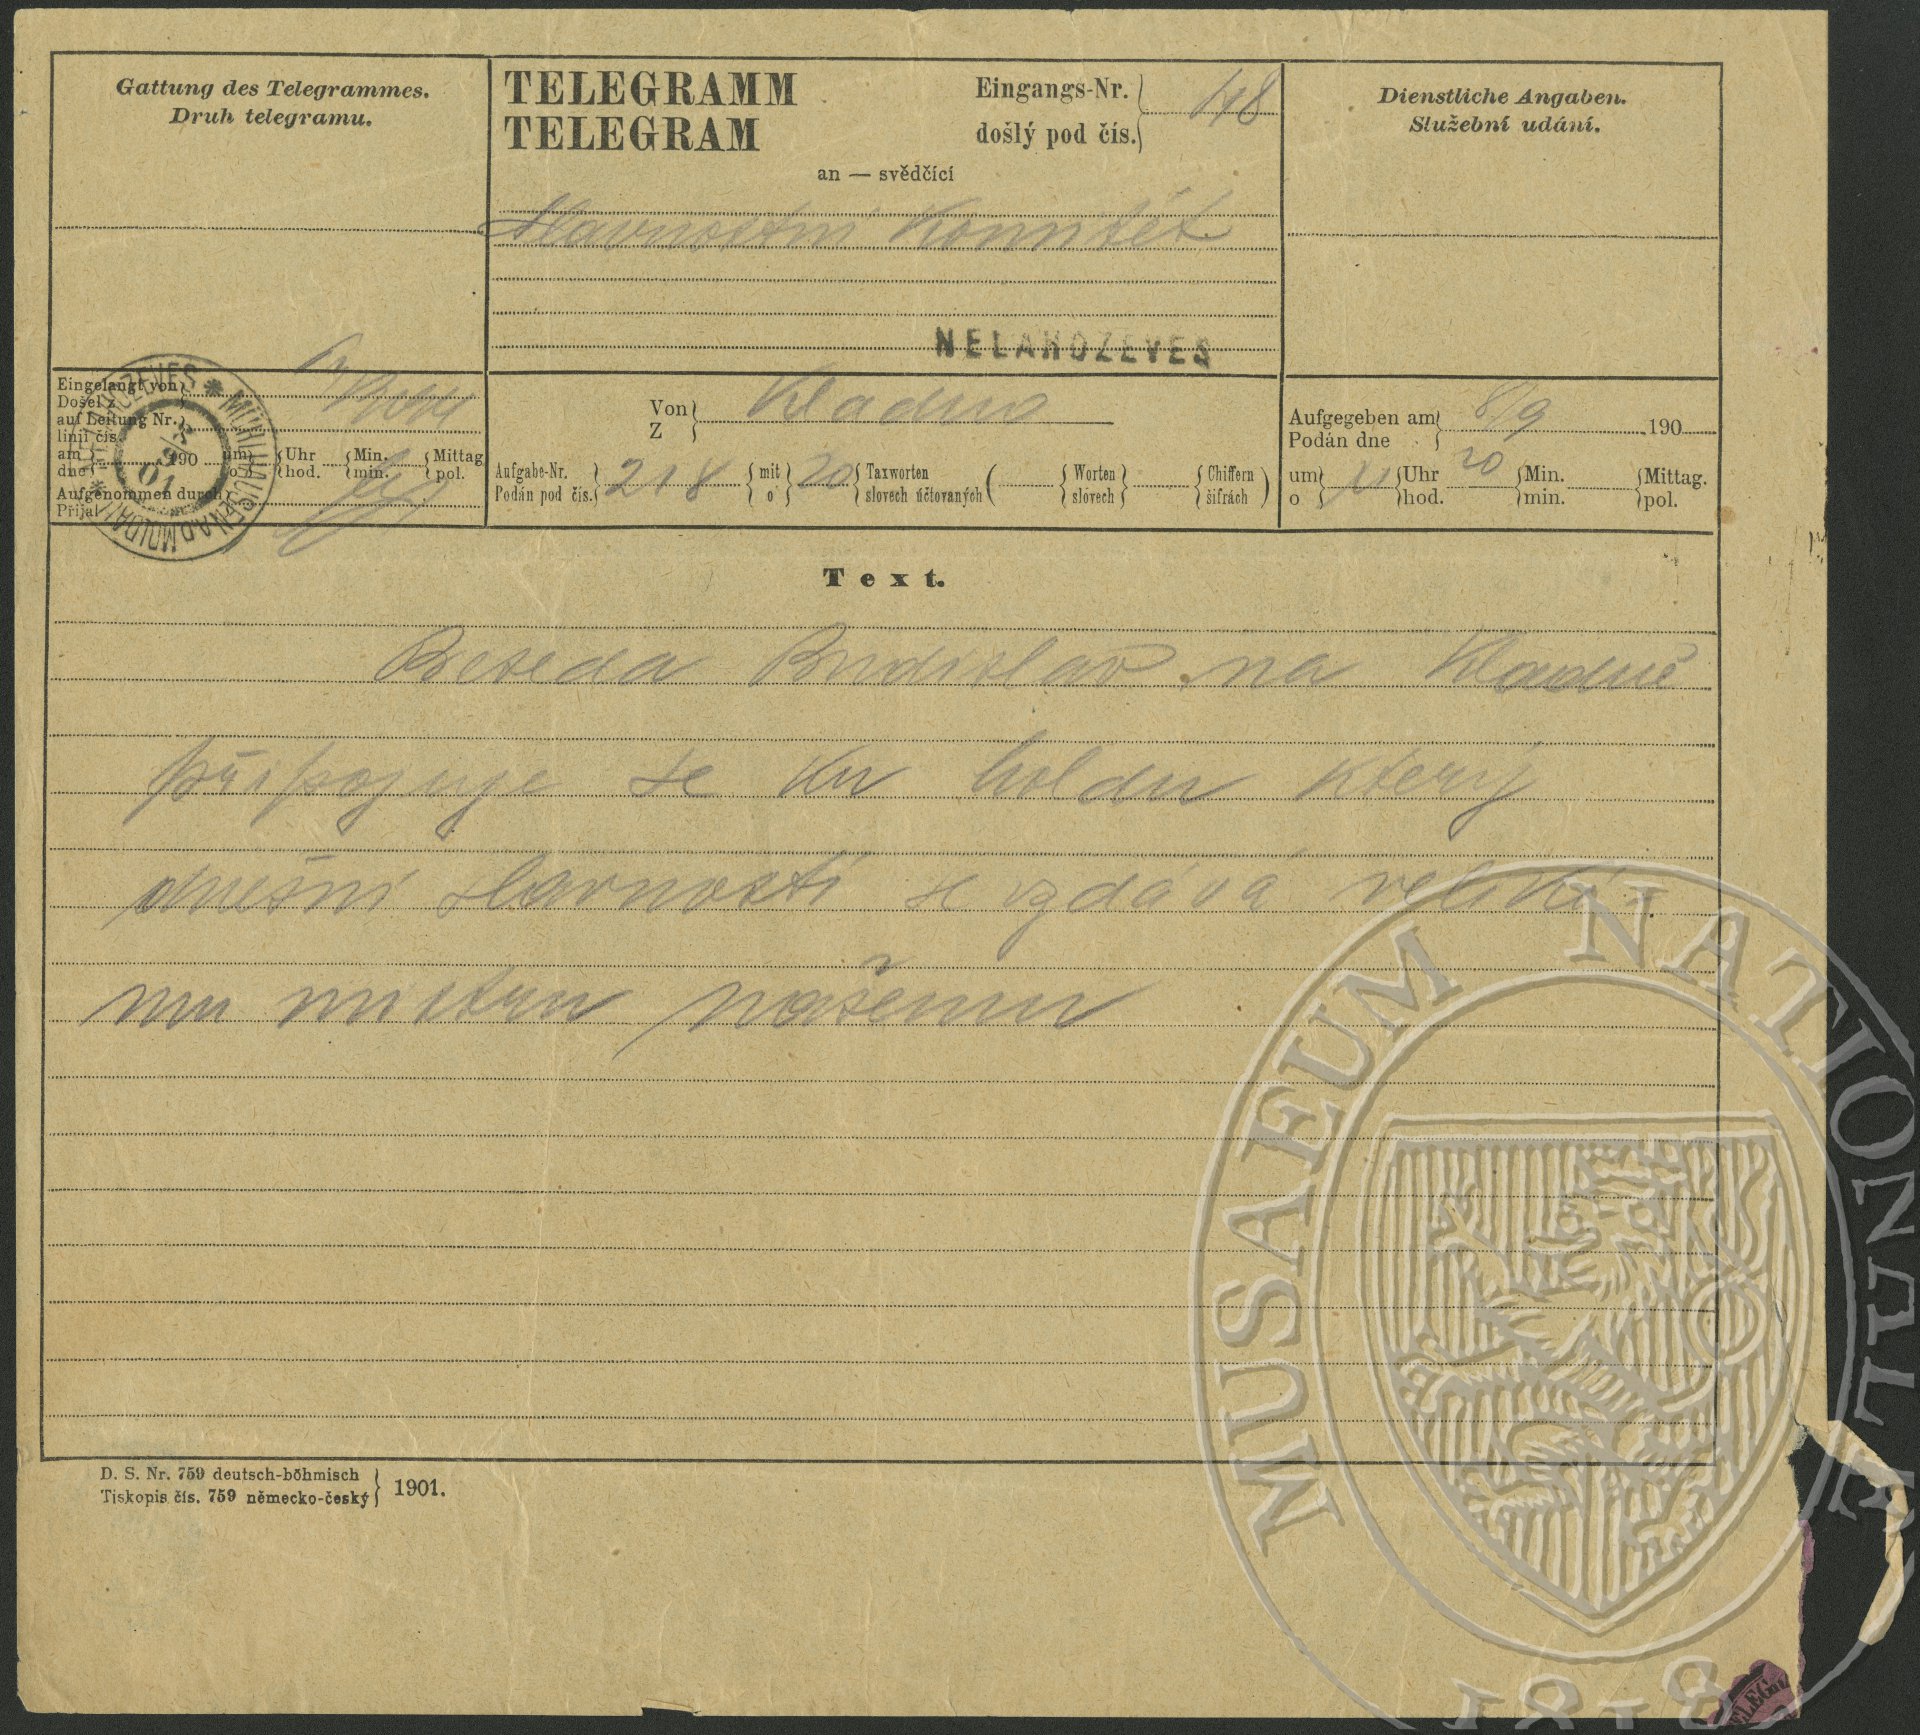 Gattung des Telegrammes.
Druh telegramu.
TELEGRAMM
TELEGRAM
Eingangs-Nr.
došlý pod čís.
148
an — svědčící
Slavnostní Komitét
NELAHOZEVES
Dienstliche Angaben.
Služební udání.
Eingelangt von
Došel z
auf Leitung Nr.
linii čís.
am 190 um Uhr Min. Mittag
dne o hod. min. pol.
Aufgenommen durch
Přijal
NELAHOZEVES * MÜHLHAUSEN A.D. MOLDAU *
8/9 01
Von
Z
Kladno
Aufgabe-Nr. 218 mit 20 Taxworten ( Worten Chiffern )
Podán pod čís. o slovech účtovaných slovech šifrách
Aufgegeben am 8/9 190
Podán dne
um 11 Uhr 20 Min. Mittag.
o hod. min. pol.
Text.
Beseda Budislav na Kladně
připojuje se ku holdu který
dnešní slavností se vzdává veliké-
mu mistru našemu
D. S. Nr. 759 deutsch-böhmisch
Tiskopis čís. 759 německo-český
1901.
MUSAEUM NATIONALE
1818